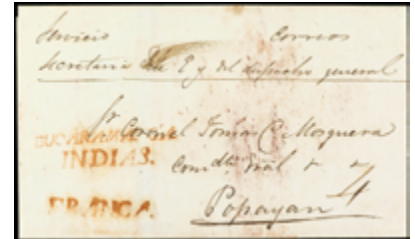 Servicio Correos
Secretaria del E y del despacho general
Sr Coronel Tomas C Mosquera
BUCARAMANGA
INDIAS.
Comdte Gral
FRANCA.
Popayan
4